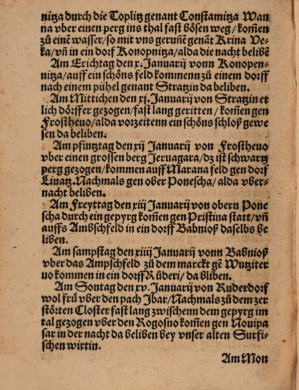 nitza durch die Toplitz genant Constamitza Wan
na vber einen perg ins thal fast bösen weg/ komen
zu eine wasser/ so mit vns gerunē genāt Krina Re-
ka/ vn̄ in ein dorf Konopnitza/ alda die nacht belibē
Am Erichtag den x. Januarij vonn Konopen-
nitza/ auff ein schöns feld kommenn zu einem dorff
nach einem pühel genant Stratzin da beliben.
Am Mittichen den xj. Januarij von Stratzin et
lich dörffer gezogen/ fast lang geritten/ kom̄en gen
Frostheno/ alda vorzeitenn ein schöns schloß gewe
sen da beliben.
Am pfintztag den xij Januarij von Frostheno
vber einen grossen berg Jernagara/ dz ist schwartz
perg gezogen/ kommen auff Marana feld gen dorf
Linatz. Nachmals gen ober Ponescha/ alda vber-
nacht beliben.
Am Freyttag den xiij Januarij von obern Pone
scha durch ein gepyrg kom̄en gen Pristina start/ vn̄
auffs Ambschfeld in ein dorff Babnioß daselbs be
liben.
Am sampstag den xiiij Januarij vonn Babnioß
vber das Ampschfeld zu dem marckt gē Wutziter
no kommen in ein dorff Ruderi/ da bliben.
Am Sontag den xv. Januarij von Ruderdorf
wol frü vber den pach Jbar/ Nachmals zu dem zer
stōrten Closter fast lang zwischenn dem gepyrg im
tal gezogen vber den Rogosno kom̄en gen Nouipa
sar in der nacht da beliben bey vnser alten Surfi-
schen wirtin.
Am Mon